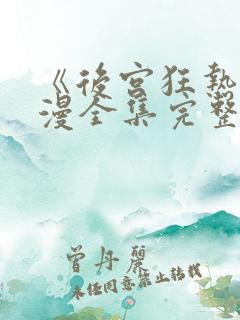 《後宮狂熱
漫全集完整
曾丹麗
未經同意禁止轉載